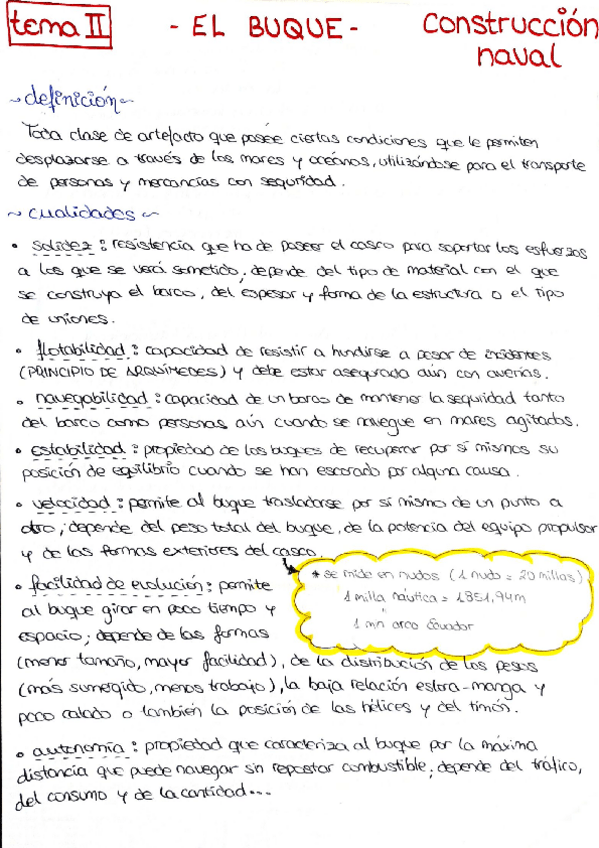 tema II - EL BUQUE - construcción
naval
~ definición ~
Toda clase de artefacto que posée ciertas condiciones que le permiten
desplazarse a través de los mares y océanos, utilizándose para el transporte
de personas y mercancías con seguridad.
~ cualidades ~
• solidez: resistencia que ha de poseer el casco para soportar los esfuerzos
a los que se verá sometido; depende del tipo de material con el que
se construya el barco, del espesor y forma de la estructura o el tipo
de uniones.
• flotabilidad: capacidad de resistir a hundirse a pesar de incidentes
(PRINCIPIO DE ARQUÍMEDES) y debe estar asegurada aún con averías.
• navegabilidad: capacidad de un barco de mantener la seguridad tanto
del barco como personas aún cuando se navegue en mares agitados.
• estabilidad: propiedad de los buques de recuperar por sí mismos su
posición de equilibrio cuando se han escorado por alguna causa.
• velocidad: permite al buque trasladarse por sí mismo de un punto a
otro; depende del peso total del buque, de la potencia del equipo propulsor
y de las formas exteriores del casco.
* se mide en nudos (1 nudo = 20 millas)
1 milla náutica = 1851,94m
"
1 mn arco Ecuador
• facilidad de evolución: permite
al buque girar en poco tiempo y
espacio; depende de las formas
(menor tamaño, mayor facilidad), de la distribución de los pesos
(más sumergido, menos trabajo), la baja relación eslora-manga y
poco calado o también la posición de las hélices y del timón.
• autonomía: propiedad que caracteriza al buque por la máxima
distancia que puede navegar sin repostar combustible; depende del tráfico,
del consumo y de la cantidad...